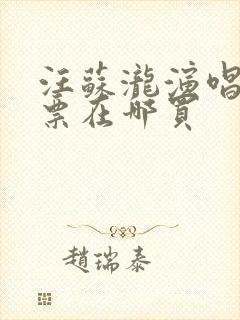 汪蘇瀧演唱
票在哪買
趙瑞泰